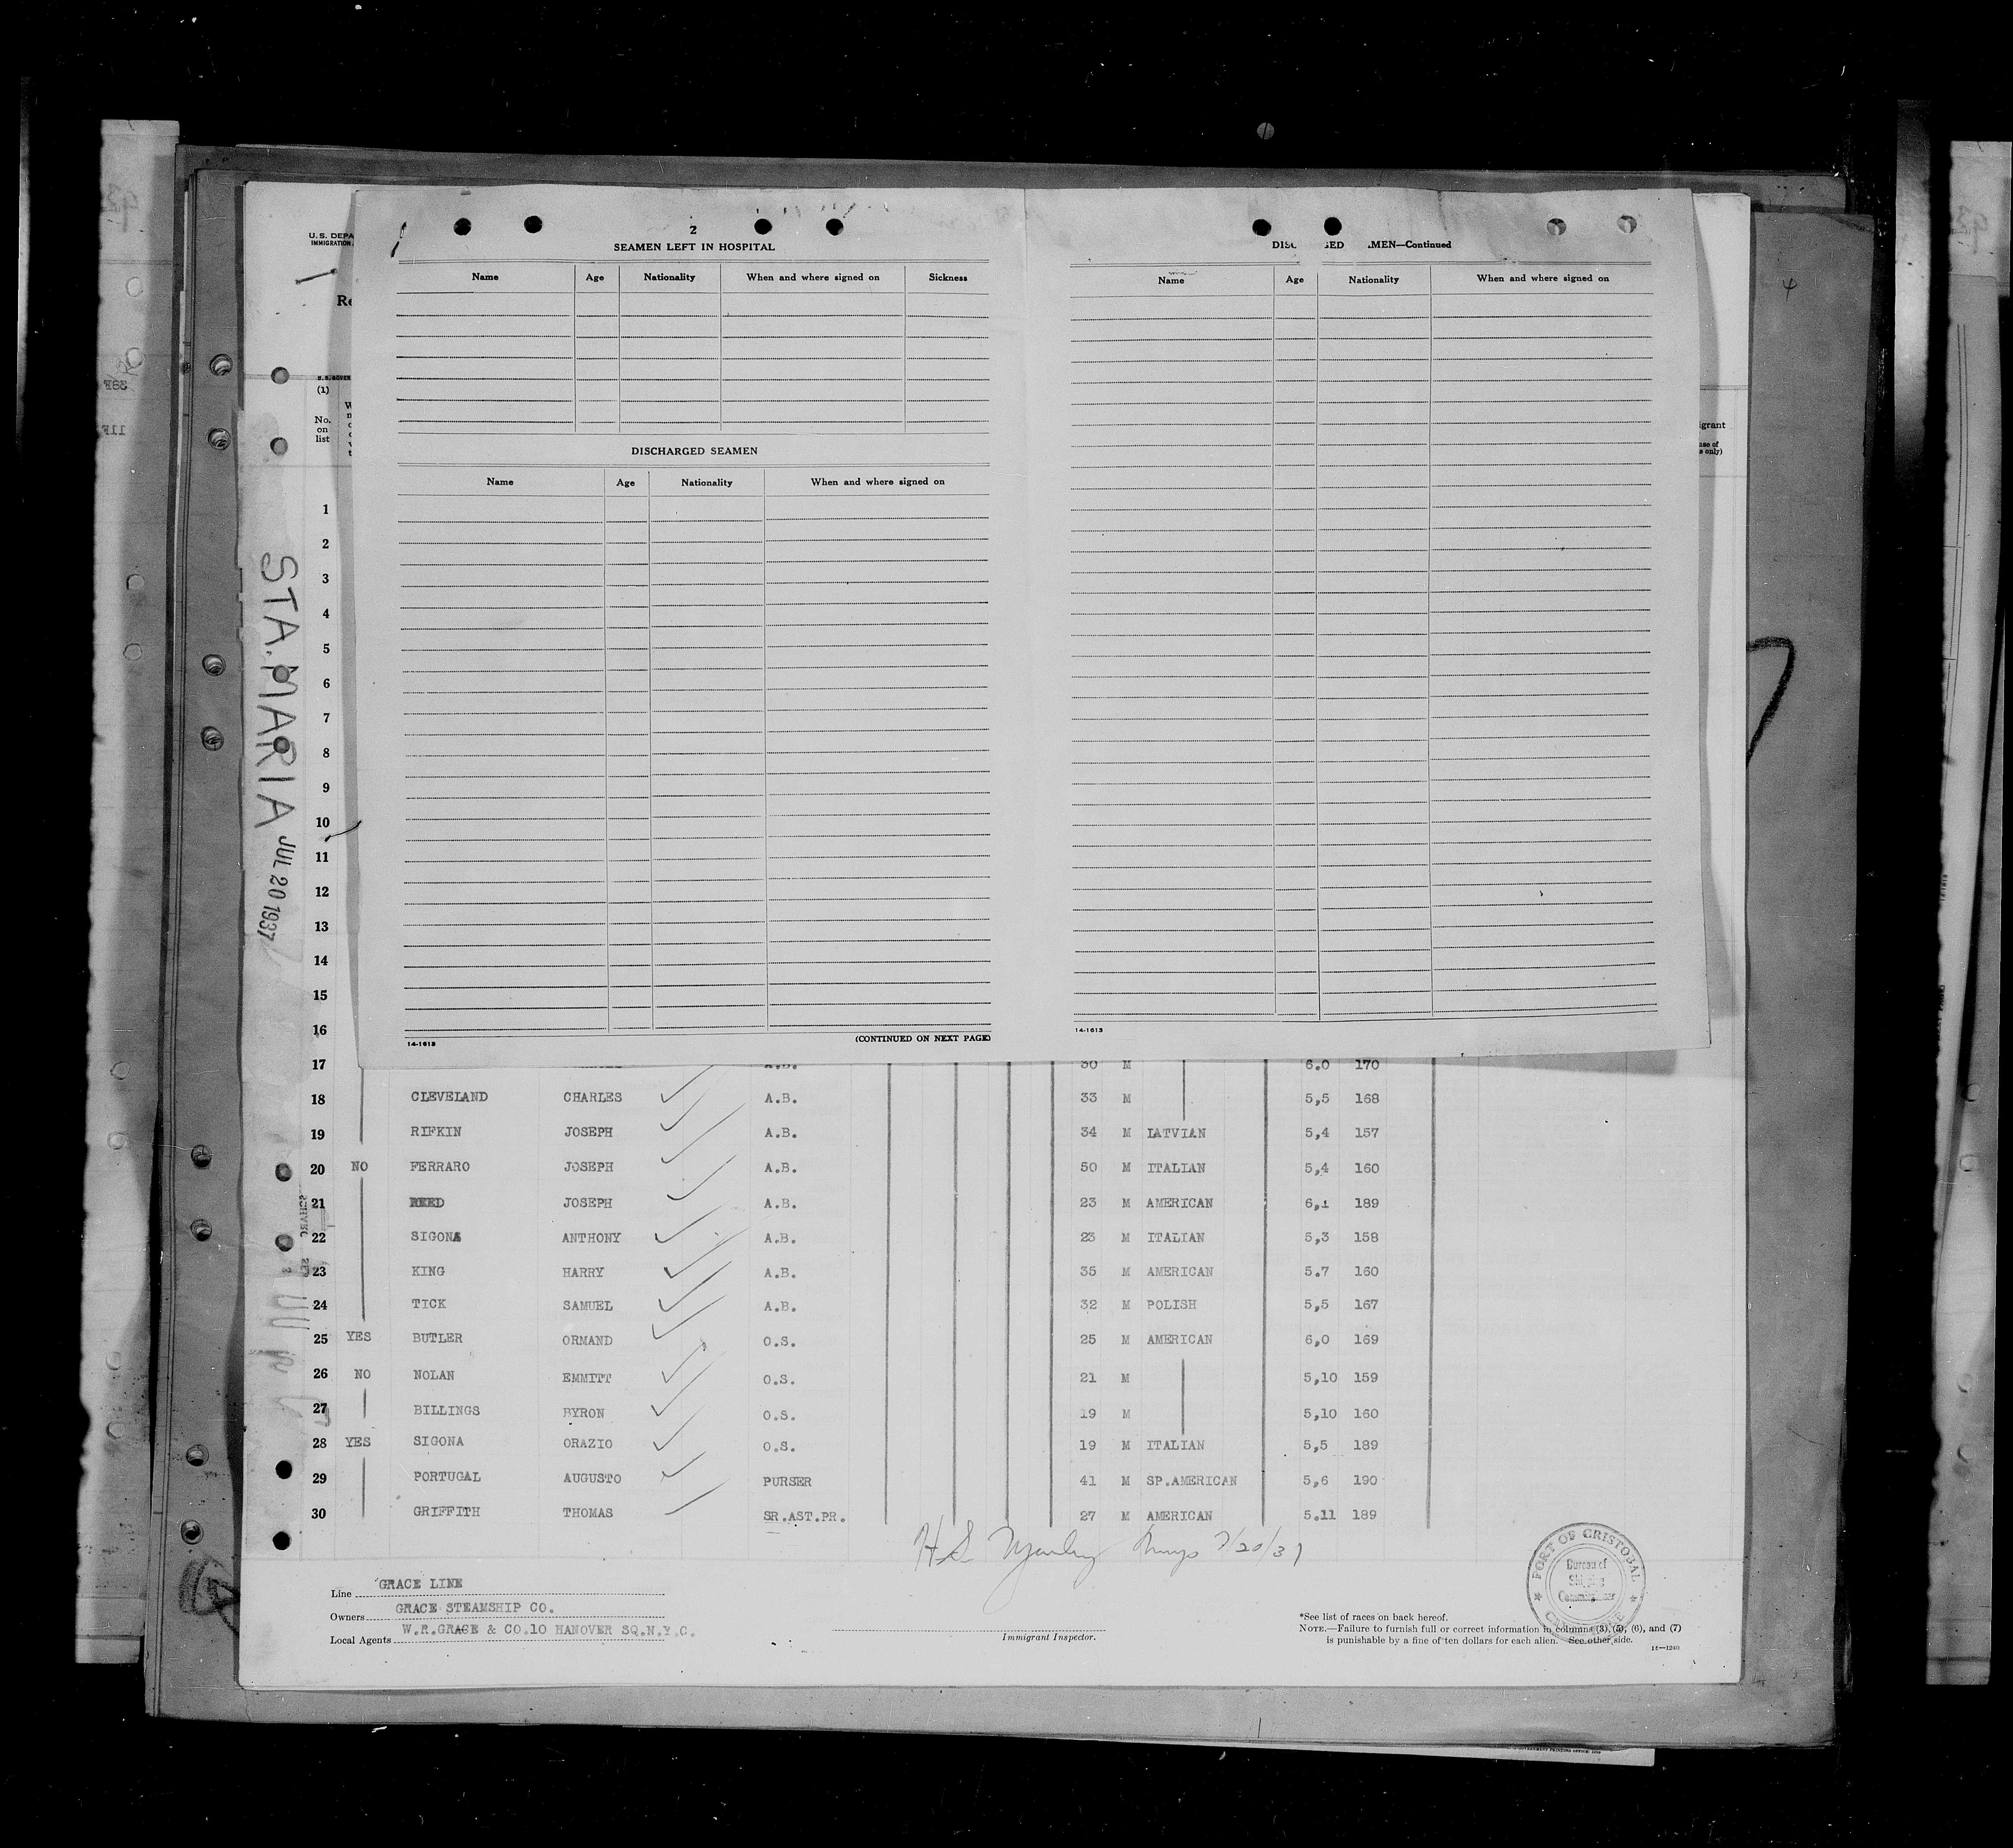 2
SEAMEN LEFT IN HOSPITAL
Name Age Nationality When and where signed on Sickness
DISCHARGED SEAMEN
Name Age Nationality When and where signed on
14-1613
(CONTINUED ON NEXT PAGE)
DISC ED MEN—Continued
Name Age Nationality When and where signed on
14-1613
U.S. DEPA
IMMIGRATION
Re
U.S. GOVER
(1)
No. on list
igrant
use of
s only)
STA. MARIA JUL 20 1937
1
2
3
4
5
6
7
8
9
10
11
12
13
14
15
16
17 A.B. 30 M 6.0 170
18 CLEVELAND CHARLES A.B. 33 M 5,5 168
19 RIFKIN JOSEPH A.B. 34 M LATVIAN 5,4 157
20 NO FERRARO JOSEPH A.B. 50 M ITALIAN 5,4 160
21 REED JOSEPH A.B. 23 M AMERICAN 6,1 189
22 SIGONA ANTHONY A.B. 23 M ITALIAN 5,3 158
23 KING HARRY A.B. 35 M AMERICAN 5.7 160
24 TICK SAMUEL A.B. 32 M POLISH 5,5 167
25 YES BUTLER ORMAND O.S. 25 M AMERICAN 6,0 169
26 NO NOLAN EMMITT O.S. 21 M 5,10 159
27 BILLINGS BYRON O.S. 19 M 5,10 160
28 YES SIGONA ORAZIO O.S. 19 M ITALIAN 5,5 189
29 PORTUGAL AUGUSTO PURSER 41 M SP.AMERICAN 5,6 190
30 GRIFFITH THOMAS SR.AST.PR. 27 M AMERICAN 5.11 189
7/20/37
Line GRACE LINE
Owners GRACE STEAMSHIP CO.
Local Agents W.R.GRACE & CO.10 HANOVER SQ.N.Y.C.
Immigrant Inspector.
PORT OF CRISTOBAL
Bureau of
Shipping
Commissioner
*See list of races on back hereof.
NOTE.—Failure to furnish full or correct information in columns (3), (5), (6), and (7)
is punishable by a fine of ten dollars for each alien. See other side.
14—1240